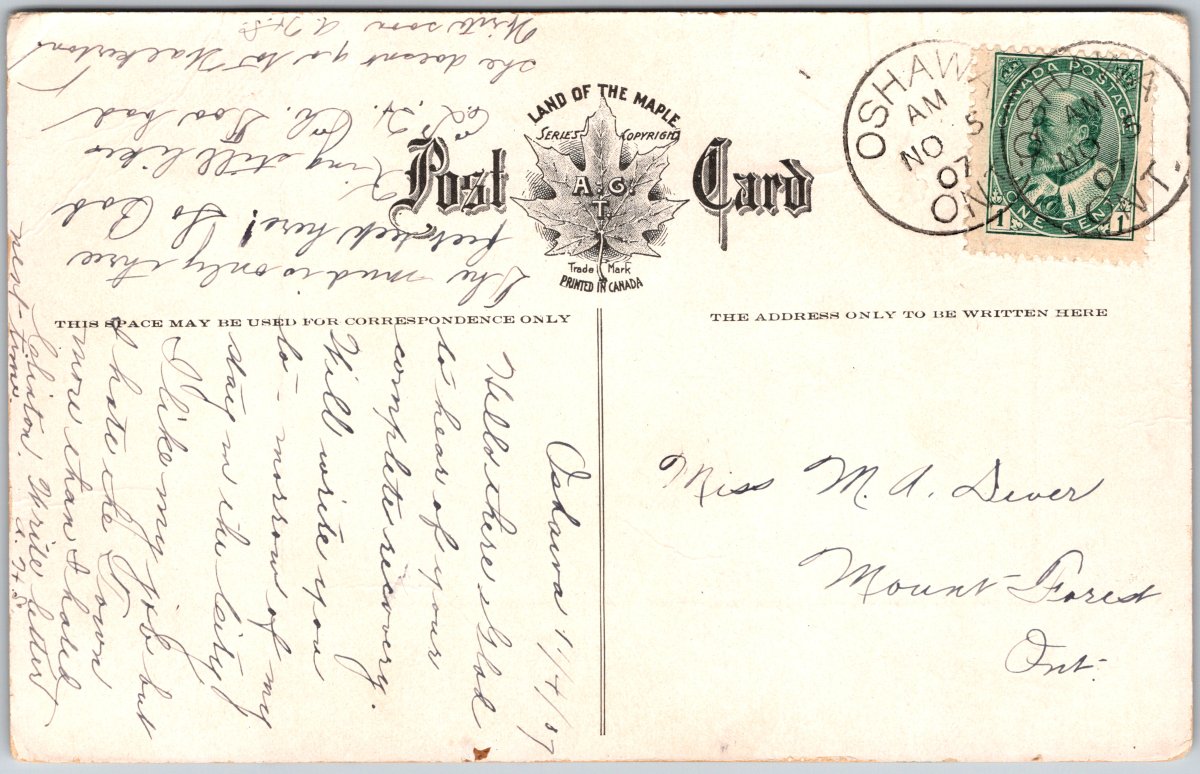 LAND OF THE MAPLE
SERIES COPYRIGHT
Post Card
A. G.
T.
Trade Mark
PRINTED IN CANADA
OSHAWA
AM
NO 5
07
ONT.
OSHAWA
AM
5
NO
07
ONT.
CANADA POSTAGE
1 ONE CENT 1
THIS SPACE MAY BE USED FOR CORRESPONDENCE ONLY
THE ADDRESS ONLY TO BE WRITTEN HERE
Oshawa 11/4/07
Hello there. Glad
to hear of your
complete recovery.
Will write you
to-morrow of my
stay in the City
I like my job but
I hate the Town
more than I hated
Clinton. Write letter
next time.
The mud is only three
feet here! So Bad
King still likes
Too bad
she doesn't go to Walkerton
Write soon
Miss M. A. Dever
Mount Forest
Ont.